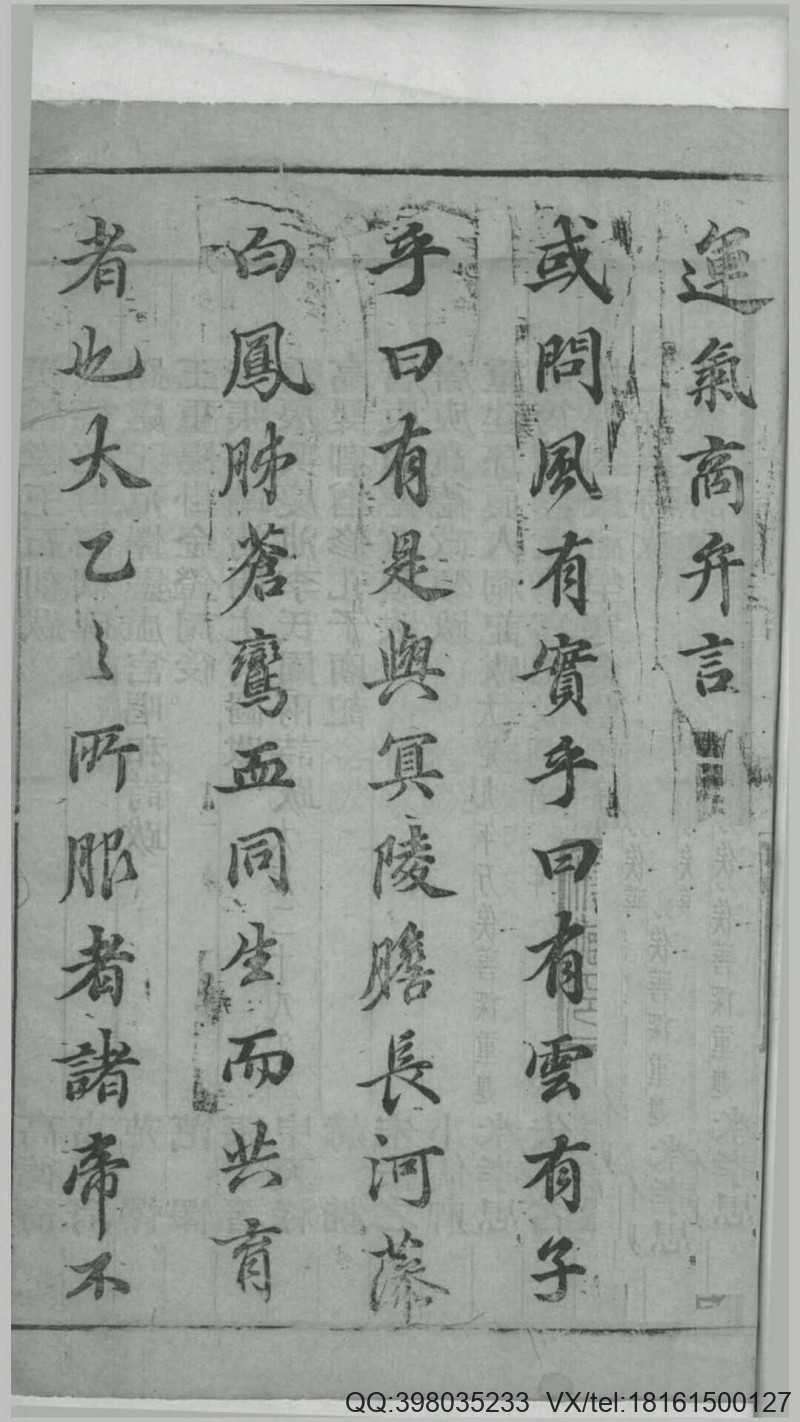 運氣商弁言
或問風有實乎曰有雲有子
乎曰有是與冥陵膽長河藻
白鳳肺蒼鸞血同生而共育
者也太乙之所服者諸帝不
QQ:398035233 VX/tel:18161500127